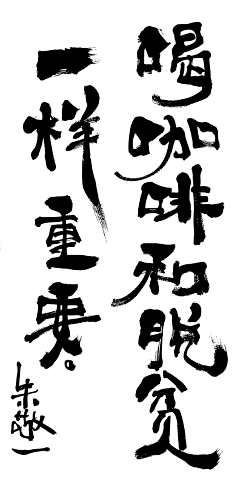 喝咖啡和脱贫
一样重要。
朱敬一